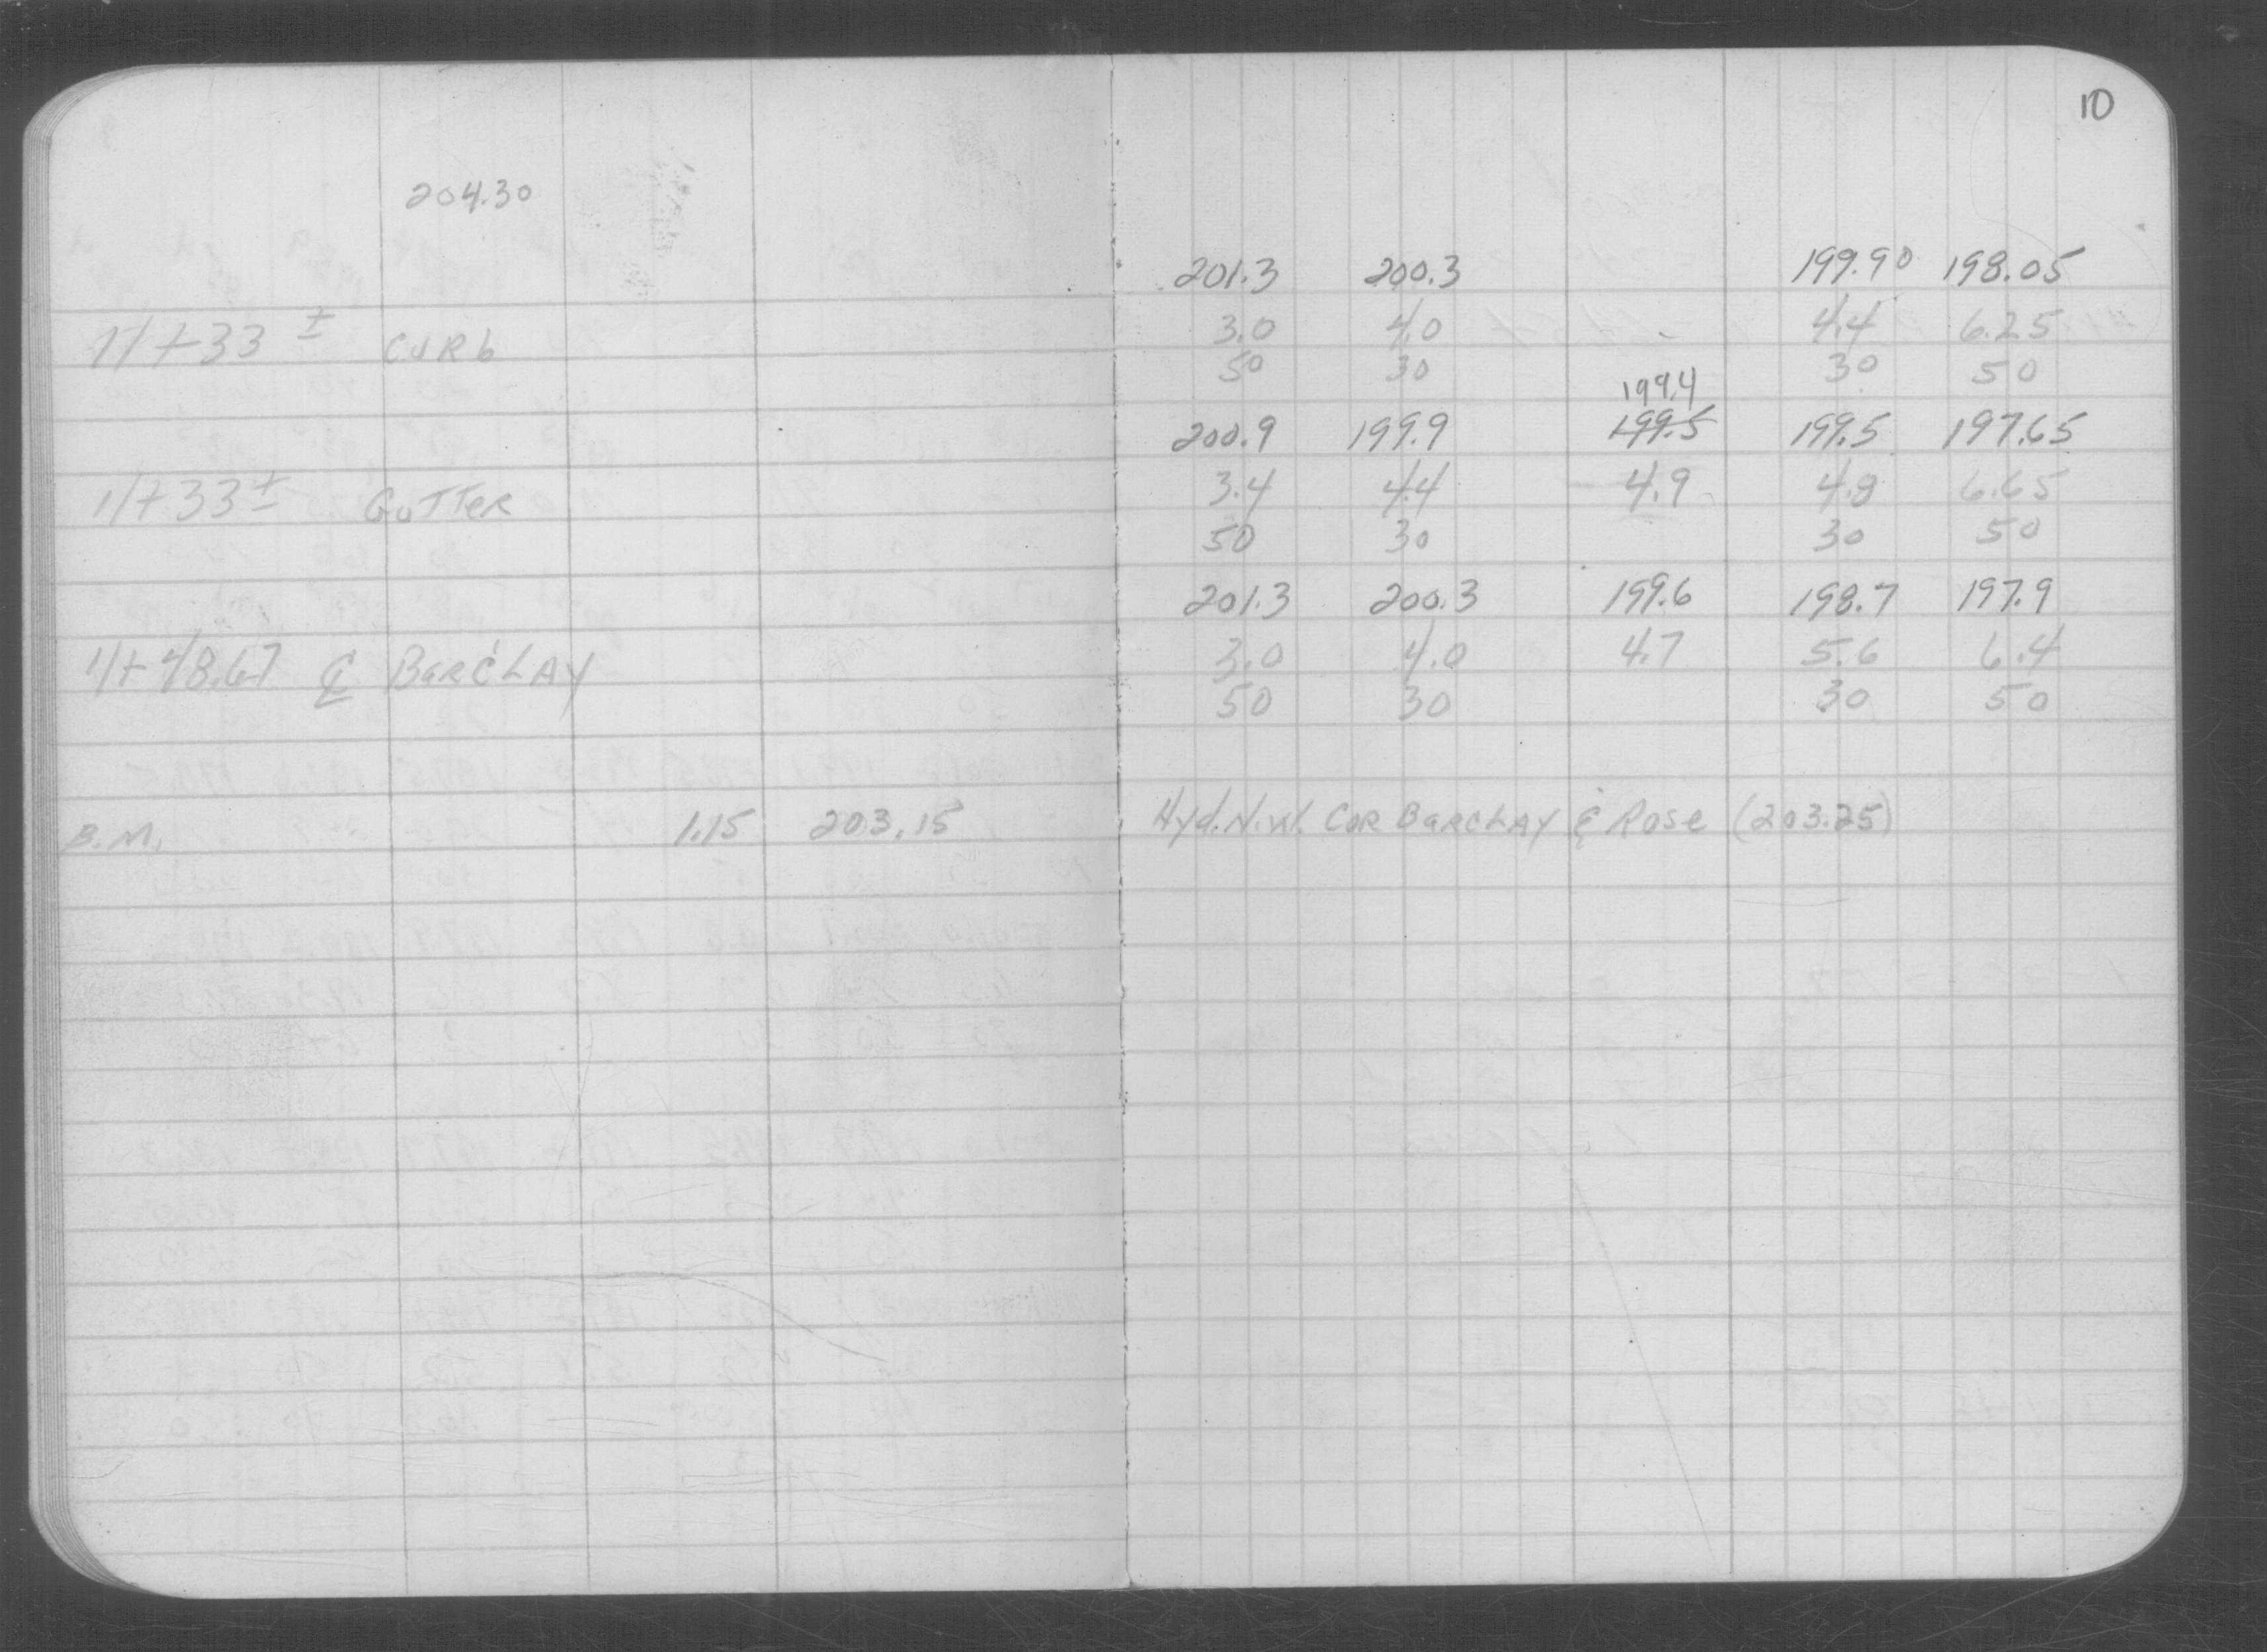 10
204.30
201.3 200.3 199.90 198.05
11+33 ± CURb 3.0 4.0 4.4 6.25
50 30 30 50
199.4
200.9 199.9 199.5 199.5 197.65
11+33 ± GuTTeR 3.4 4.4 4.9 4.8 6.65
50 30 30 50
201.3 200.3 199.6 198.7 197.9
11+48.67 ℄ BaRCLAY 3.0 4.0 4.7 5.6 6.4
50 30 30 50
B.M. 1.15 203.15 Hyd. N.W. COR BaRCLAY & Rose (203.25)